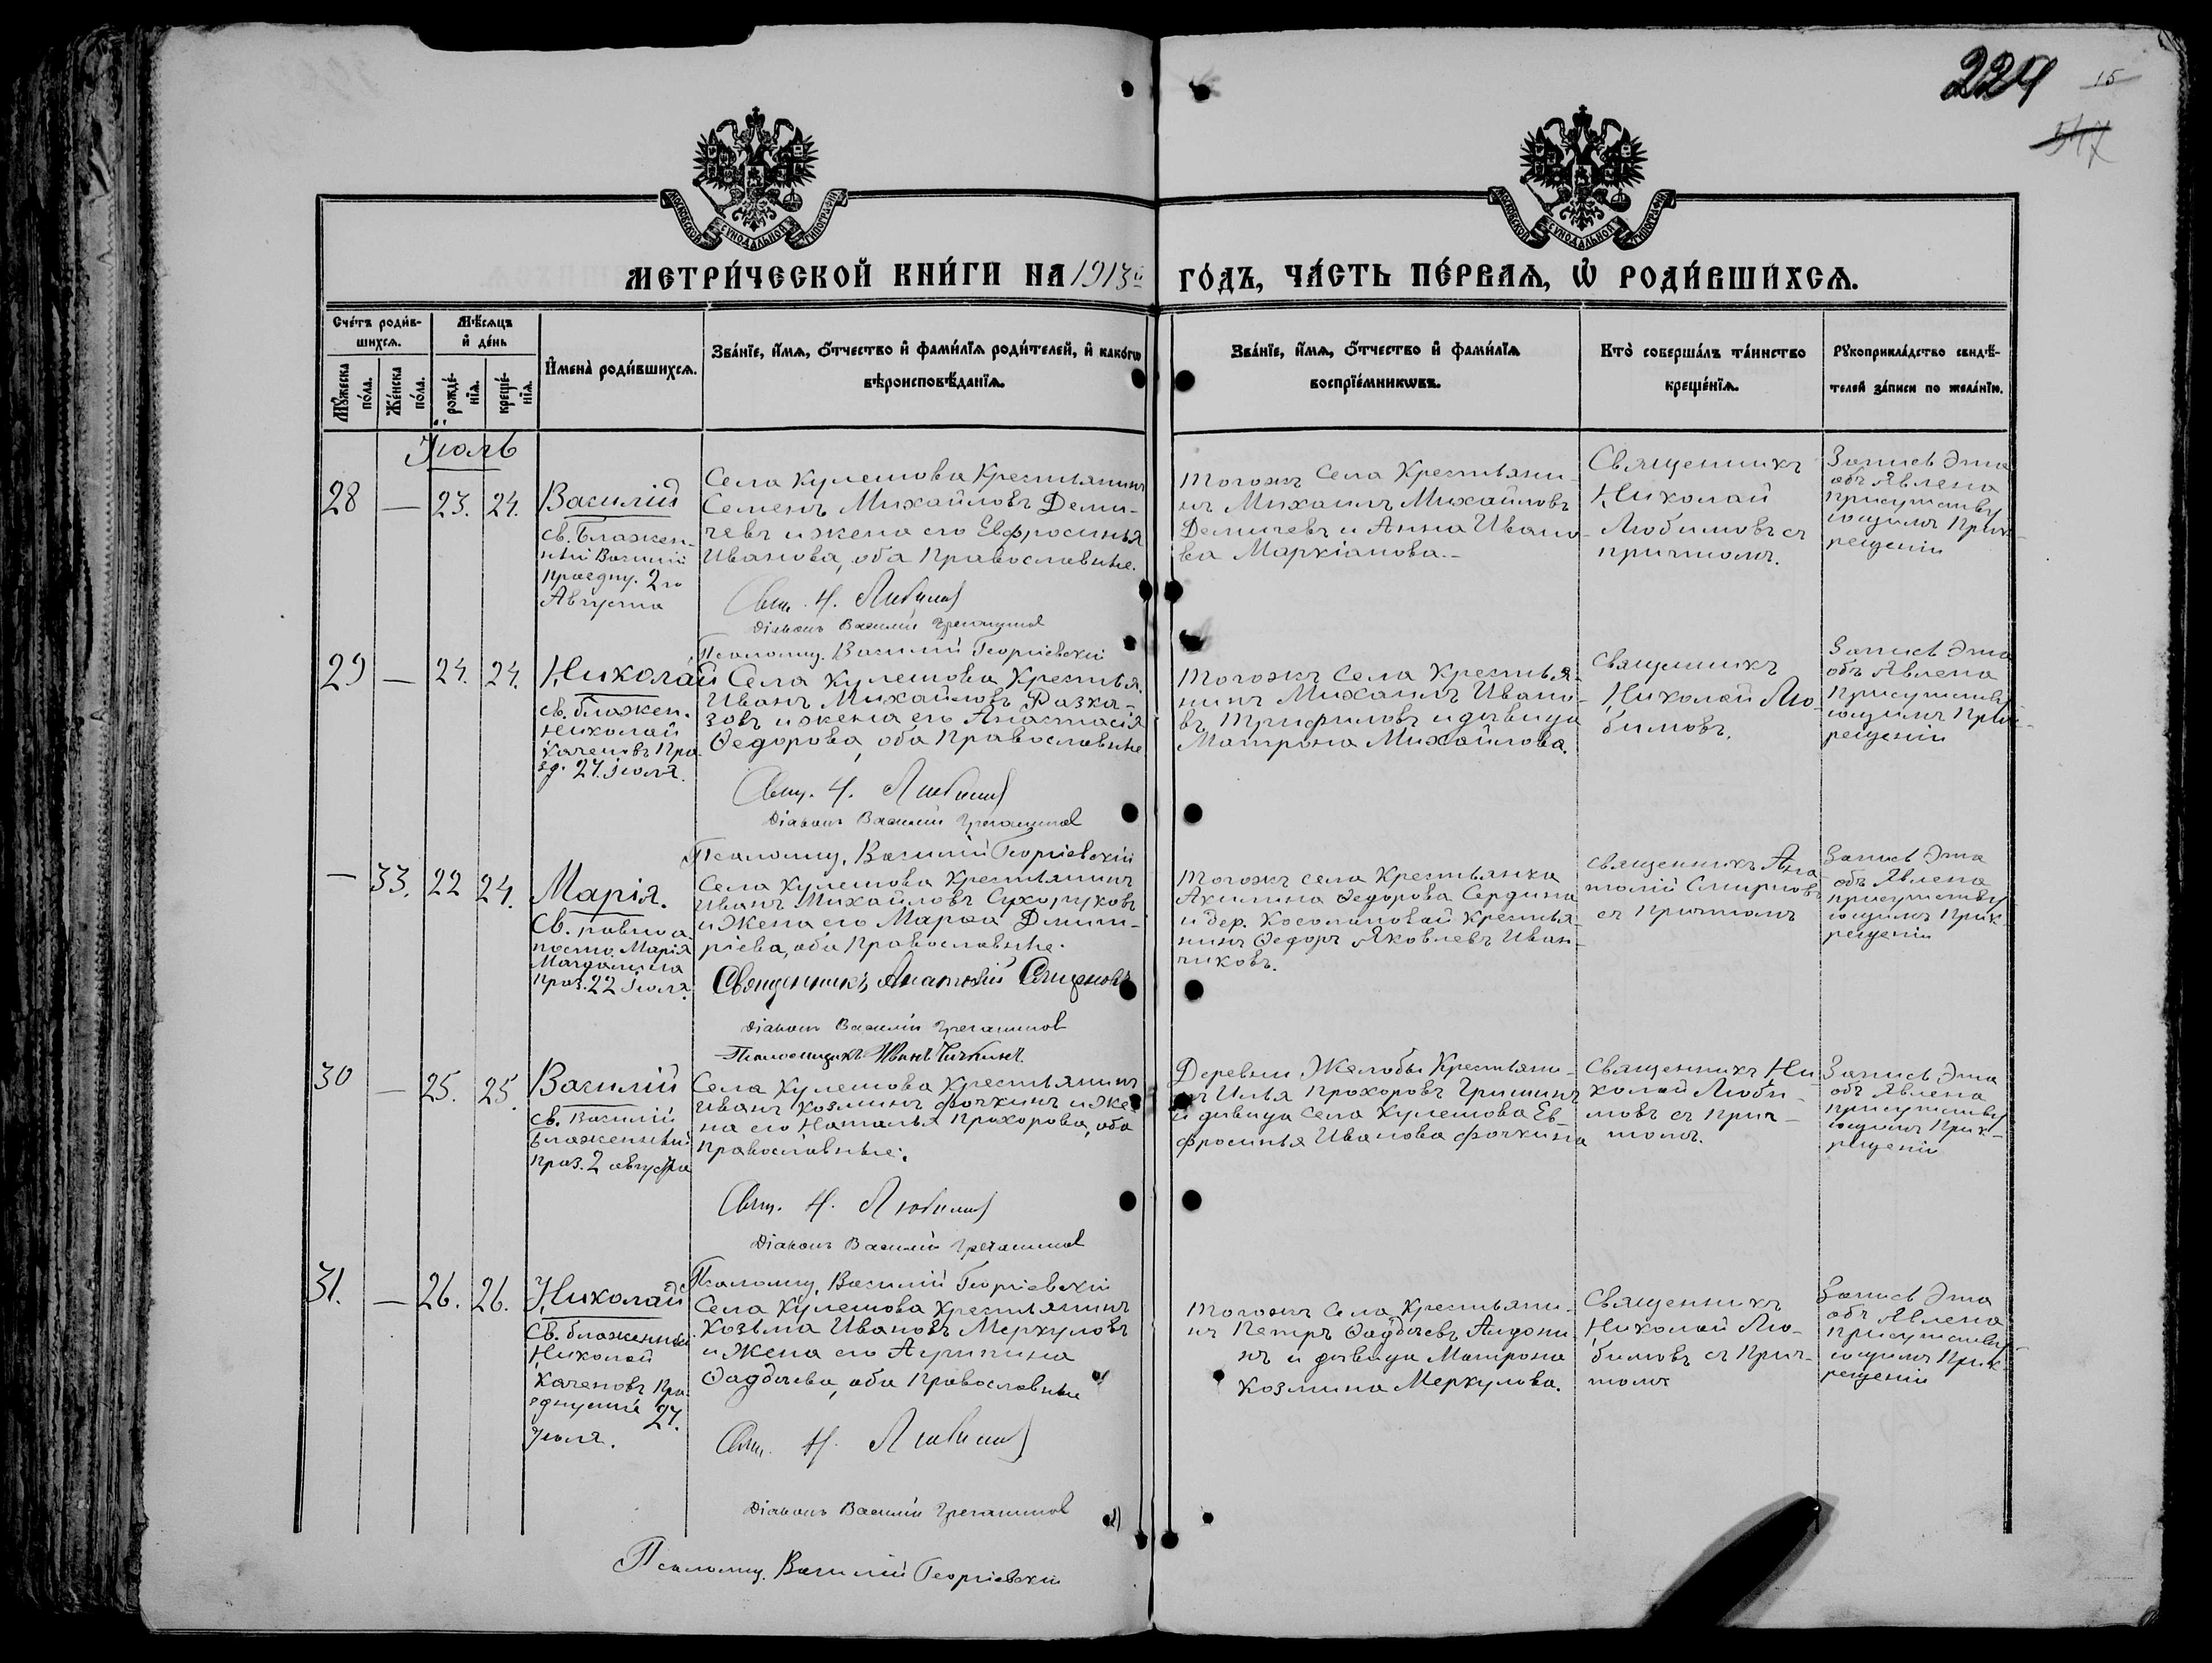 224 15
547
МОСКОВСКОЙ СУНОДАЛЬНОЙ ТИПОГРАФІИ
МОСКОВСКОЙ СУНОДАЛЬНОЙ ТИПОГРАФІИ
МЕТРИ́ЧЕСКОЙ КНИ́ГИ НА 1913й ГО́ДЪ, ЧА́СТЬ ПЕ́РВАѦ, Ѡ҆ РОДИ́ВШИХСѦ.
Сче́тъ роди́в-
шихсѧ.
Мѣ́сѧцъ
и҆ де́нь
Мꙋ́жеска
по́ла.
Же́нска
по́ла.
рожде́-
нїѧ.
креще́-
нїѧ.
И҆мена̀ роди́вшихсѧ.
Зва́нїе, и҆́мѧ, ѻ҆́тчество и҆ фами́лїѧ роди́телей, и҆ како́гѡ
вѣроисповѣ́данїѧ.
Зва́нїе, и҆́мѧ, ѻ҆́тчество и҆ фами́лїѧ
воспрїе́мникѡвъ.
Кто̀ соверша́лъ та́инство
креще́нїѧ.
Рꙋкоприкла́дство свидѣ́-
телей за́писи по жела́нїю.
Іюль
28 — 23. 24.
Василій
св. Блажен-
ный Василій
праздну. 2го
Августа
Села Кулешова Крестьянинъ
Семенъ Михайловъ Деми-
чевъ и жена его Евфросинья
Иванова, оба Православные.
Свящ. Н. Любимов
Діаконъ Василій Гречанинов
Псаломщ. Василій Георгіевскій
Тогожъ Села Крестьяни-
нъ Михаилъ Михайловъ
Демичевъ и Анна Ивано-
ва Маркіанова.-
Священникъ
Николай
Любимовъ съ
причтомъ.
Запись Эта
объ Явлена
присутству
ющимъ При к-
рещеніи
29 — 24. 24.
Николай
св. блажен.
Николай
Качановъ Пра
зд. 27. Іюля.
Села Кулешова Крестья.
Иванъ Михайловъ Разка-
зовъ и жена его Анастасія
Ѳедорова, оба Православные
Свящ. Н. Любимов
Діаконъ Василій Гречанинов
Псаломщ. Василій Георгіевскій
Тогожъ Села Крестья-
нинъ Михаилъ Ивано-
въ Трифиловъ и дѣвица
Матрона Михайлова.
Священникъ
Николай Лю-
бимовъ.
Запись Эта
объ Явлена
Присутству
ющимъ При к-
рещеніи
— 33. 22 24.
Марія.
Св. равноа-
посто. Марія
Магдалина
праз. 22 Іюля.
Села Кулешова Крестьянинъ
Иванъ Михайловъ Сухоруковъ
и Жена его Марѳа Дмит-
ріева, оба Православные.
Священникъ Анатолій Смирновъ
Діаконъ Василій Гречанинов
Псаломщикъ Иванъ
Тогожъ села Крестьянка
Акилина Ѳедорова Сердина
и дер. Косолаповой Крестья-
нинъ Ѳедоръ Яковлевъ Иван-
чиковъ.
Священникъ Ана
толій Смирновъ
съ Причтомъ
Запись Эта
объ Явлена
присутству
ющимъ При к-
рещеніи
30 — 25. 25.
Василій
Св. Василій
Блаженный
праз. 2 августа
Села Кулешова Крестьянинъ
Иванъ Козминъ Фочкинъ и Же-
на его Наталья Прохорова, оба
Православные.
Свящ. Н. Любимов
Діаконъ Василій Гречанинов
Псаломщ. Василій Георгіевскій
Деревни Желобы Крестьяни-
нъ Илья Прохоровъ Гришинъ
и дѣвица села Кулешова Ев-
фросинья Иванова Фочкина
Священникъ Ни-
колай Люби-
мовъ съ При ч-
томъ.
Запись Эта
объ Явлена
присутству
ющимъ При к-
рещеніи
31. — 26. 26.
Николай
Св. блаженный
Николай
Качановъ Пра-
зднуеміа 27.
Іюля.
Села Кулешова Крестьянинъ
Козьма Ивановъ Меркуловъ
и Жена его Агрипина
Ѳаддѣева, оба Православные
Свящ. Н. Любимов
Діаконъ Василій Гречанинов
Псаломщ. Василій Георгіевскій
Тогожъ Села Крестьяни-
нъ Петръ Ѳаддѣевъ Андони-
нъ и дѣвица Матрона
Козмина Меркулова.
Священникъ
Николай Лю-
бимовъ съ При ч-
томъ
Запись Эта
объ Явлена
присутству
ющимъ При к-
рещеніи